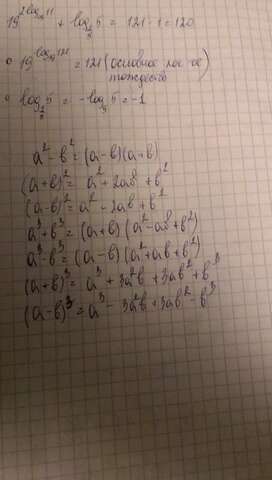 19^{2log_{19}11} + log_{1/5}5 = 121 - 1 = 120
• 19^{log_{19}121} = 121 (основное лог-ое
тождество)
• log_{1/5}5 = -log_5 5 = -1
a² - b² = (a-b)(a+b)
(a+b)² = a² + 2ab + b²
(a-b)² = a² - 2ab + b²
a³ + b³ = (a+b)(a² - ab + b²)
a³ - b³ = (a-b)(a² + ab + b²)
(a+b)³ = a³ + 3a²b + 3ab² + b³
(a-b)³ = a³ - 3a²b + 3ab² - b³